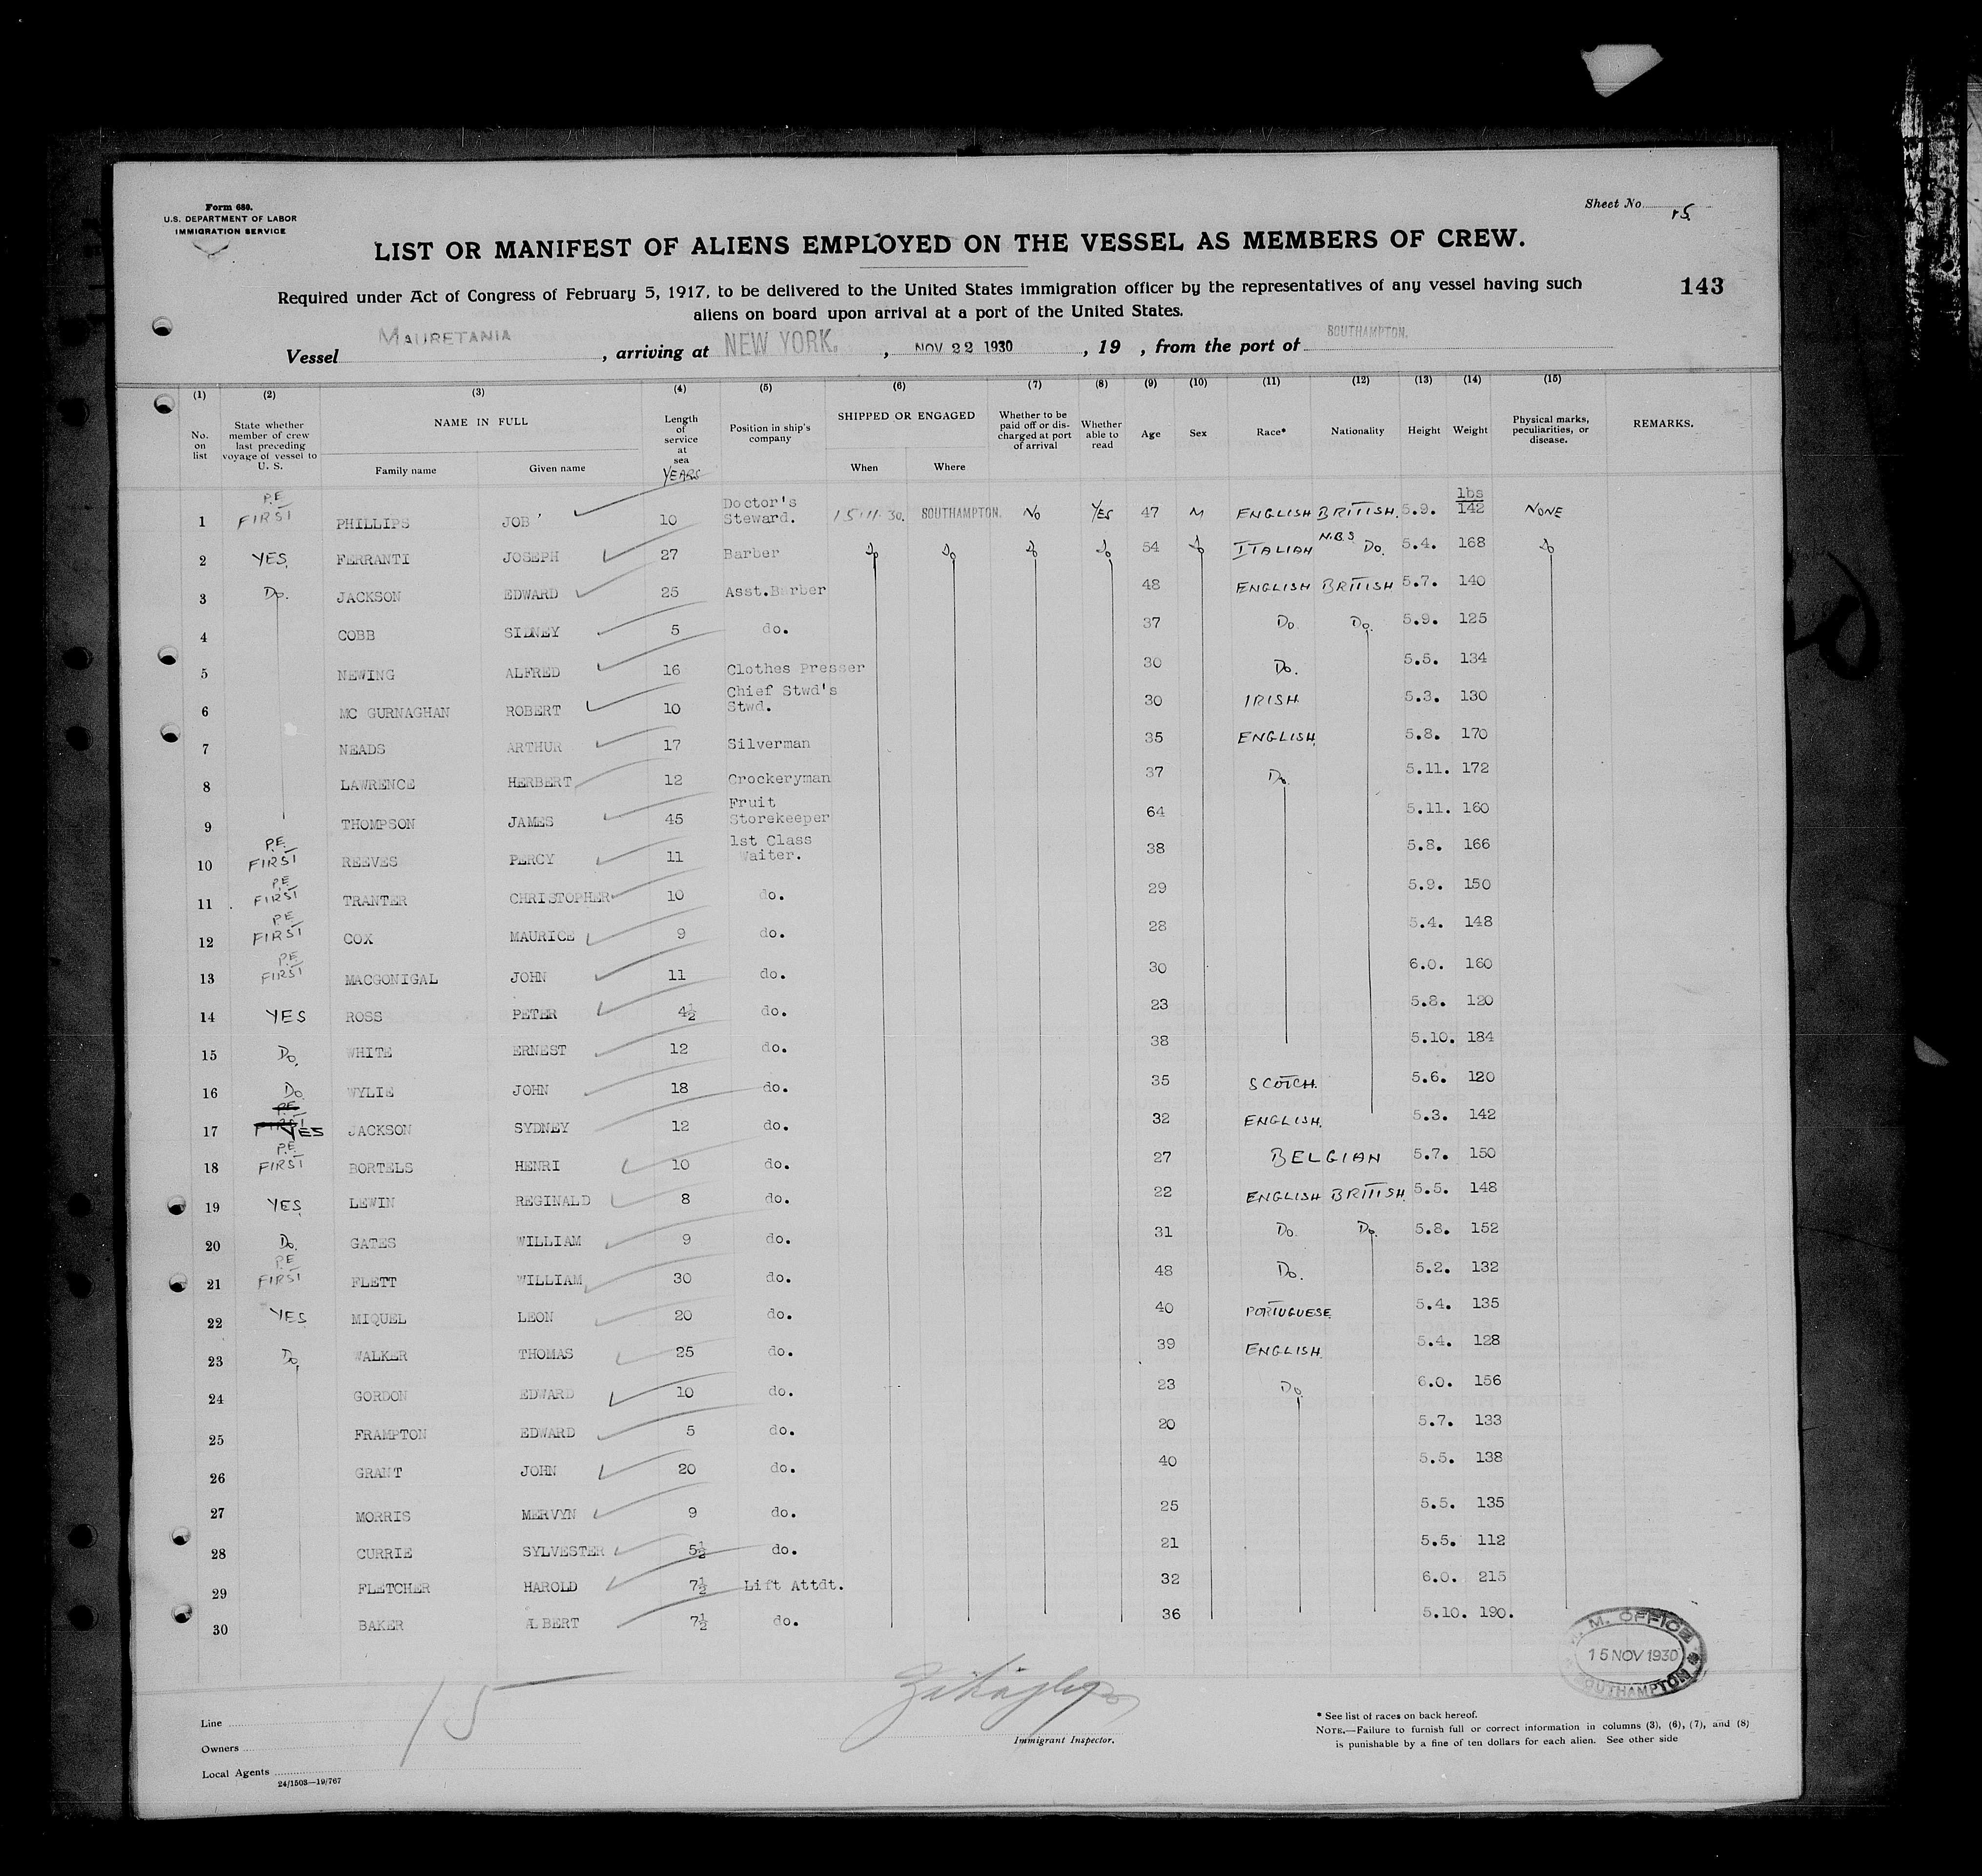 Form 680.
U.S. DEPARTMENT OF LABOR
IMMIGRATION SERVICE
Sheet No. 15
LIST OR MANIFEST OF ALIENS EMPLOYED ON THE VESSEL AS MEMBERS OF CREW.
143
Required under Act of Congress of February 5, 1917, to be delivered to the United States immigration officer by the representatives of any vessel having such
aliens on board upon arrival at a port of the United States.
Vessel MAURETANIA, arriving at NEW YORK., NOV 22 1930, 19 , from the port of SOUTHAMPTON.
(1) (2) (3) (4) (5) (6) (7) (8) (9) (10) (11) (12) (13) (14) (15)
No. on list State whether member of crew last preceding voyage of vessel to U. S. NAME IN FULL Family name Given name Length of service at sea YEARS Position in ship's company SHIPPED OR ENGAGED When Where Whether to be paid off or discharged at port of arrival Whether able to read Age Sex Race* Nationality Height Weight Physical marks, peculiarities, or disease. REMARKS.
1 P.E. FIRST PHILLIPS JOB 10 Doctor's Steward. 15.11.30. SOUTHAMPTON. NO YES 47 M ENGLISH BRITISH. 5.9. lbs 142 NONE
2 YES. FERRANTI JOSEPH 27 Barber Do Do Do Do 54 Do ITALIAN N.B.S. Do. 5.4. 168 Do
3 Do. JACKSON EDWARD 25 Asst.Barber 48 ENGLISH BRITISH 5.7. 140
4 COBB SIDNEY 5 do. 37 Do Do. 5.9. 125
5 NEWING ALFRED 16 Clothes Presser 30 Do. 5.5. 134
6 MC GURNAGHAN ROBERT 10 Chief Stwd's Stwd. 30 IRISH 5.3. 130
7 NEADS ARTHUR 17 Silverman 35 ENGLISH. 5.8. 170
8 LAWRENCE HERBERT 12 Crockeryman 37 Do. 5.11. 172
9 THOMPSON JAMES 45 Fruit Storekeeper 64 5.11. 160
10 P.E. FIRST REEVES PERCY 11 1st Class Waiter. 38 5.8. 166
11 P.E. FIRST TRANTER CHRISTOPHER 10 do. 29 5.9. 150
12 P.E. FIRST COX MAURICE 9 do. 28 5.4. 148
13 P.E. FIRST MACGONIGAL JOHN 11 do. 30 6.0. 160
14 YES ROSS PETER 4½ do. 23 5.8. 120
15 Do. WHITE ERNEST 12 do. 38 5.10. 184
16 Do WYLIE JOHN 18 do. 35 SCOTCH. 5.6. 120
17 P.E. FIRST YES JACKSON SYDNEY 12 do. 32 ENGLISH. 5.3. 142
18 P.E. FIRST BORTELS HENRI 10 do. 27 BELGIAN 5.7. 150
19 YES. LEWIN REGINALD 8 do. 22 ENGLISH BRITISH. 5.5. 148
20 Do. GATES WILLIAM 9 do. 31 Do Do. 5.8. 152
21 P.E. FIRST FLETT WILLIAM 30 do. 48 Do. 5.2. 132
22 YES MIQUEL LEON 20 do. 40 PORTUGUESE 5.4. 135
23 Do. WALKER THOMAS 25 do. 39 ENGLISH. 5.4. 128
24 GORDON EDWARD 10 do. 23 Do. 6.0. 156
25 FRAMPTON EDWARD 5 do. 20 5.7. 133
26 GRANT JOHN 20 do. 40 5.5. 138
27 MORRIS MERVYN 9 do. 25 5.5. 135
28 CURRIE SYLVESTER 5½ do. 21 5.5. 112
29 FLETCHER HAROLD 7½ Lift Attdt. 32 6.0. 215
30 BAKER ALBERT 7½ do. 36 5.10. 190.
M. OFFICE
15 NOV 1930
SOUTHAMPTON
15
Line
Owners
Local Agents
24/1503—19/767
Immigrant Inspector.
* See list of races on back hereof.
NOTE.—Failure to furnish full or correct information in columns (3), (6), (7), and (8)
is punishable by a fine of ten dollars for each alien. See other side